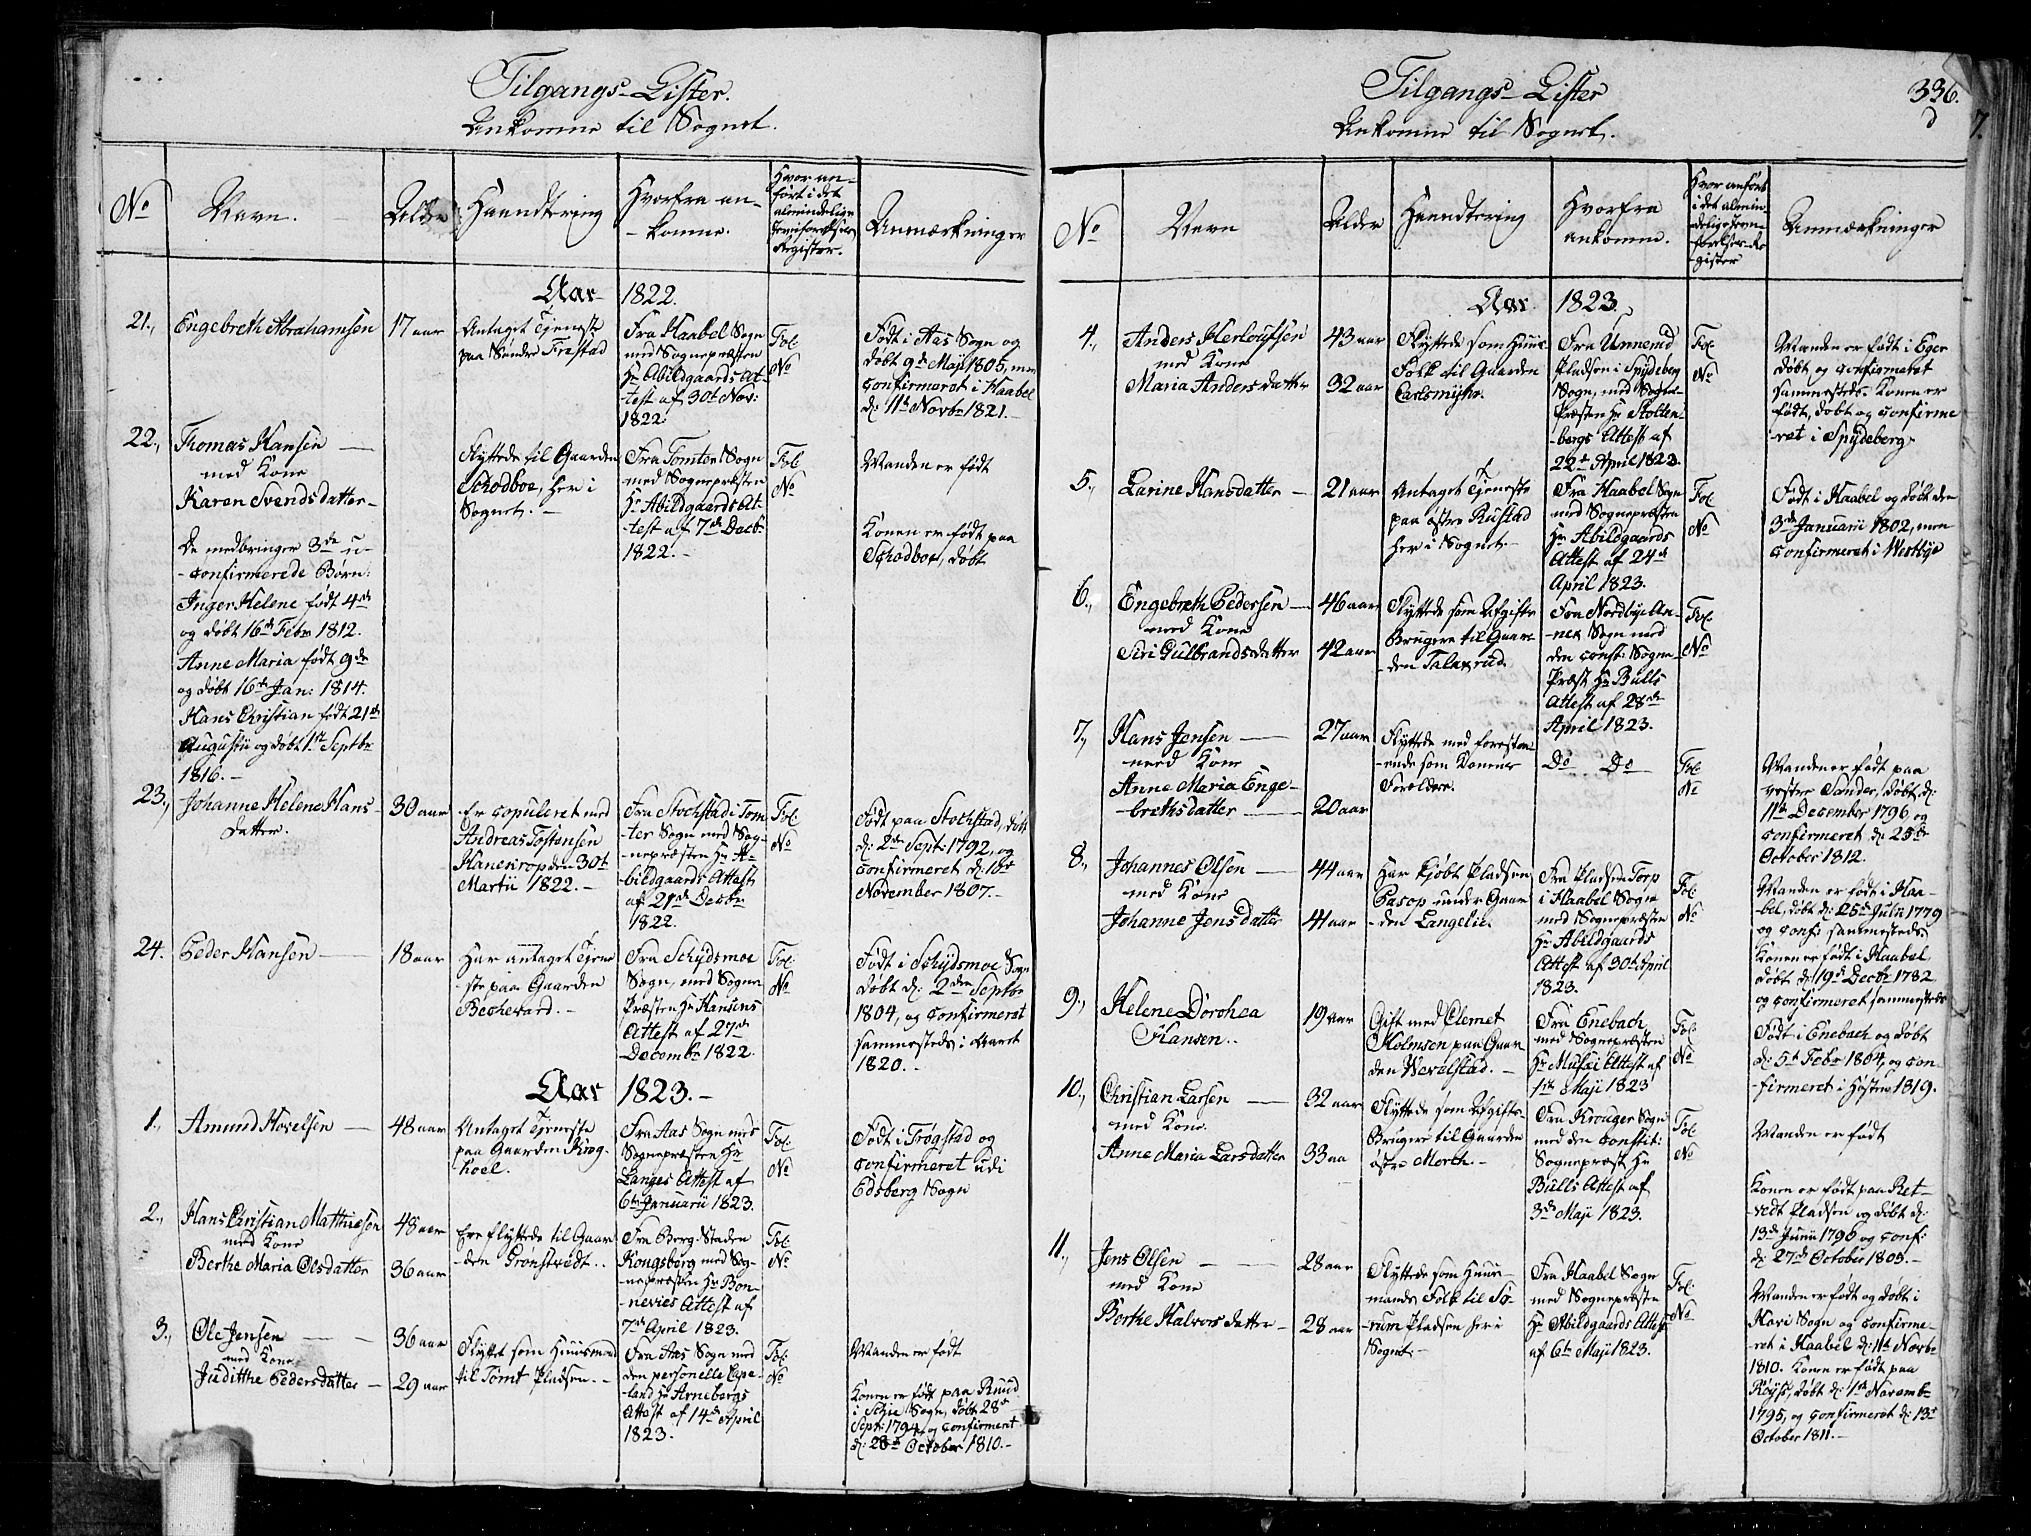 Tilgangs-Lister.
Ankomne til Sognet.
No
Navn.
Alder
Haandtering
Hvorfra an-
-komne.
Hvor an-
ført i det
almindelige
Jevnførelses
Register.
Anmærkninger
Aar 1822.
21.,
Engebreth Abrahamsen
17 aar
Antaget Tjeneste
paa Søndre Frestad
Fra Haabel Sogn
med Sognepræsten
Hr Abildgaards At-
test af 30te Nov:
1822.
Fol:
No
Født i Aas Sogn og
døbt 9de Maji 1805, men
confirmeret i Haabel
d: 11te Novbr 1821.-
22.,
Thomas Hansen
med Kone
Karen Svendsdatter-
De medbringer 3de u-
-confirmerede Børn:
Inger Helene født 4de
og døbt 16de Febr 1812.
Anne Maria født 9de
og døbt 16de Jan: 1814.
Hans Christian født 21de
Augustii og døbt 1ste Septbr
1816.-
Flyttede til Gaarden
Schodboe, her i
Sognet.-
Fra Tomter Sogn
med Sognepræsten
Hr Abildgaards At-
-test af 7de Decbr
1822.-
Fol:
No
Manden er født
Konen er født paa
Schodboe, døbt
23.,
Johanne Helene Hans-
datter.
30 aar
Er copuleret med
Andreas Tostensen
Hanekrop den 30te
Martii 1822.-
Fra Stochstad i Tom-
-ter Sogn med Sog-
-nepræsten Hr A-
bildgaards Attest
af 21de Decbr
1822.
Fol:
No
Født paa Stochstad, døbt
d: 2de Sept: 1792, og
confirmeret d: 18de
November 1807.-
24.
Peder Hansen
18 aar
Har antaget Tjene-
-ste paa Gaarden
Bechevard.-
Fra Schydsmoe
Sogn, med Sogne
Præsten Hr Hansens
Attest af 27de
Decembr 1822.
Fol:
No
Født i Schydsmoe Sogn
døbt d: 2den Septbr
1804, og confirmeret
sammesteds i Aaret
1820.-
Aar 1823.-
1.,
Amund Hovelsen
48 aar
Antaget Tjeneste
paa Gaarden Krog-
hoel.
Fra Aas Sogn med
Sognepræsten Hr
Langes Attest af
6te Januarii 1823.
Fol:
No
Født i Trøgstad og
confirmeret udi
Edsberg Sogn
2.,
Hans Christian Mathiesen
med Kone
Berthe Maria Olsdatter
48 aar
36 aar
Ere flyttede til Gaar-
-den Grønstvedt.
Fra Berg-Staden
Kongsberg med Sog-
nepræsten Hr Bon-
-nevies Attest af
7de April 1823.
Fol:
No
3.,
Ole Jensen
med Kone
Judithe Pedersdatter-
36 aar
29 aar
Flyttet som Huusmand
til Tomt Pladsen.-
Fra Aas Sogn med
den personelle Cape-
land Hr Arnebergs
Attest af 14de April
1823.
Fol:
No
Manden er født
Konen er født paa Ruud
i Schie Sogn, døbt 28de
Sept: 1794, og confirmeret
d: 28de October 1810.-
Tilgangs-Lister
Ankomne til Sognet.
336.
d
7.
No
Navn
Alder
Haandtering
Hvorfra
ankomne.
Hvor anført
i det almin-
delige Jevn-
førelses Re-
gister
Anmærkninger
Aar 1823.
4.,
Anders Herloufsen
med Kone
Maria Andersdatter
43 aar
32 aar
Flyttede som Huus-
Folk til Gaarden
Carlsmyhr.
Fra Unnerud
Pladsen i Spydeberg
Sogn, med Sogne-
Præsten Hr Stolten-
-bergs Attest af
22de April 1823.
Fol:
No
Manden er født i Eger
døbt og confirmeret
sammesteds. Konen er
født, døbt og confirme
-ret i Spydeberg.
5.,
Larine Hansdatter
21 aar
Antaget Tjeneste
paa østre Rustad
her i Sognet.-
Fra Haabel Sogn
med Sognepræsten
Hr Abildgaards
Attest af 24de
April 1823.
Fol:
No
Født i Haabel og døbt den
3de Januarii 1802, men
confirmeret i Westbye
6.,
Engebreth Pedersen
med Kone
Siri Gulbrandsdatter
46 aar
42 aar
Flyttede som Afgifts
Brugere til Gaar-
-den Talaxrud.
Fra Nordbye An-
-nex Sogn med
den const: Sogne-
Præst Hr Bulls
Attest af 28de
April 1823.
Fol:
No
7.,
Hans Jensen
med Kone
Anne Maria Enge-
-brethsdatter
27 aar
20 aar
Flyttede med forestaa-
-ende som Konens
Forældre.
Do Do
Fol:
No
Manden er født paa
vestre Sander, døbt d:
11te December 1796 og
confirmeret d: 25de
October 1812.
8.,
Johannes Olsen
med Kone
Johanne Jensdatter
44 aar
41 aar
Har kjøbt Pladsen
Pasop under Gaar-
-den Langelie.
Fra Pladsen Torp
i Haabel Sogn
med Sognepræsten
Hr Abildgaards
Attest af 30te April
1823.
Fol:
No
Manden er født i Haa-
bel, døbt d: 25de Julii 1779
og conf: sammesteds
Konen er født i Haabel,
døbt d: 19de Decbr 1782
og confirmeret sammesteds
9.,
Helene Dorohea
Hansen.
19 aar
Gift med Clemet
Holmsen paa Gaar-
den Wevelstad.-
Fra Enebach
med Sognepræsten
Hr Musæi Attest af
1ste Maji 1823
Fol:
No
Født i Enebach og døbt
d: 5te Febr 1804, og con-
-firmeret i Høsten 1819.
10.,
Christian Larsen
med Kone
Anne Maria Larsdatter
32 aar
33 aa
Flyttede som Afgifts-
Brugere til Gaarden
østre Morth.-
Fra Krogger Sogn
med den constit:
Sognepræst Hr
Bulls Attest af
3de Maji 1823.
Fol:
No
Manden er født
Konen er født paa Ret-
-vedt Pladsen og døbt d:
13de Junii 1790 og conf:
d: 27de October 1805.-
11.,
Jens Olsen
med Kone
Berthe Halvorsdatter-
28 aar
28 aar
Flyttede som Huus-
mands Folk til So-
-rum Pladsen her i
Sognet.-
Fra Haabel Sogn
med Sognepræsten
Hr Abildgaards Attest
af 6te Maji 1823.
Fol:
No
Manden er født og døbt i
Havi Sogn og confirme-
ret i Haabel d: 11te Novbr
1810. Konen er født paa
Røys, døbt d: 1ste Novemb
1795, og confirmeret d: 13de
October 1811.-